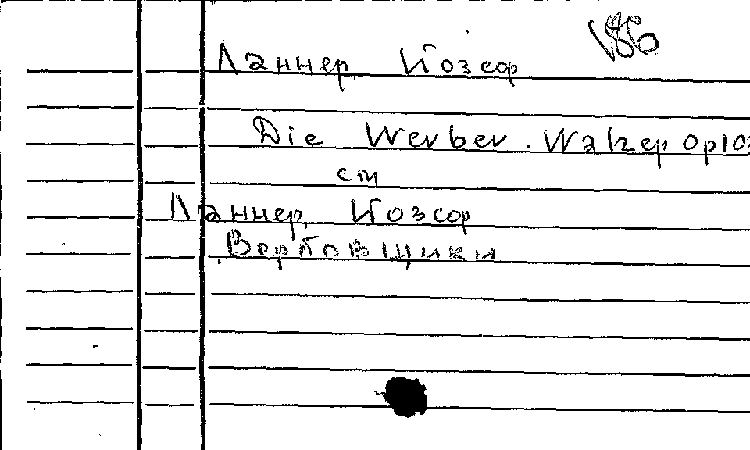 Ланнер, Йозеф
Die Werber. Walzer op 103
см
Ланнер, Йозеф
Вербовщики